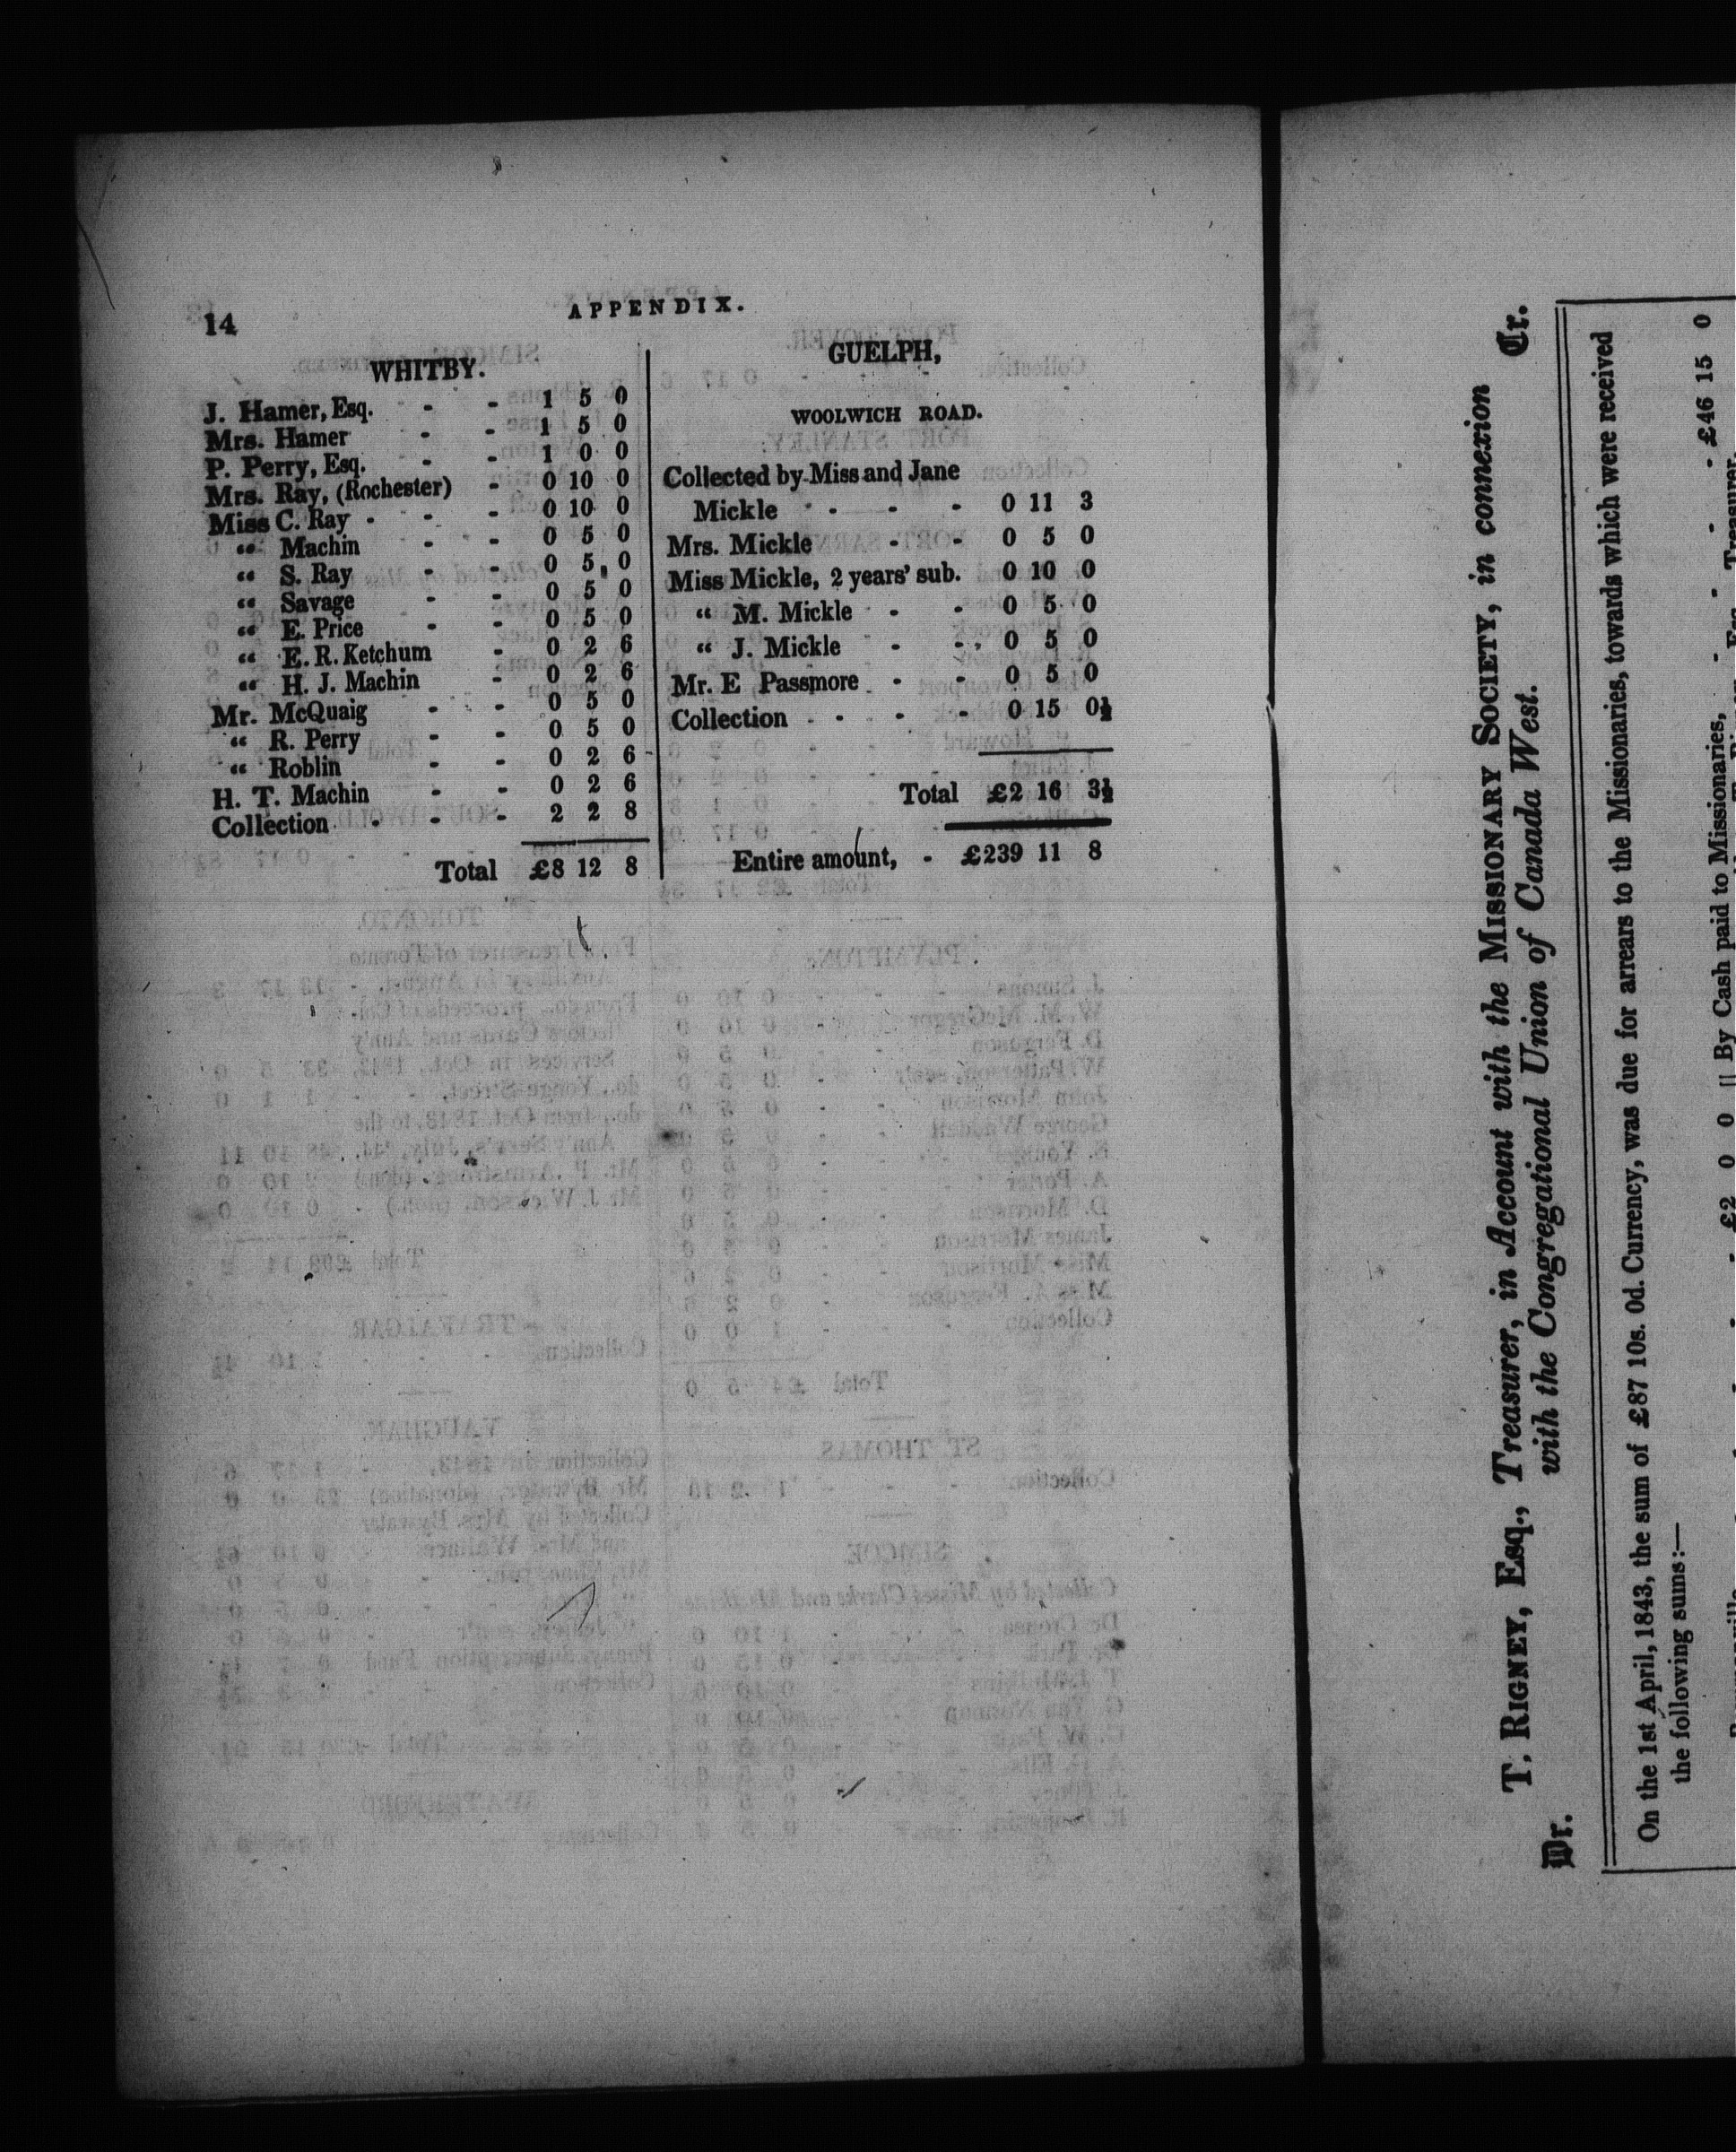 14
APPENDIX.
WHITBY.
J. Hamer, Esq. - - 1 5 0
Mrs. Hamer - - 1 5 0
P. Perry, Esq. - - 1 0 0
Mrs. Ray, (Rochester) - 0 10 0
Miss C. Ray - - - 0 10 0
“ Machin - - 0 5 0
“ S. Ray - - 0 5 0
“ Savage - - 0 5 0
“ E. Price - - 0 5 0
“ E. R. Ketchum - 0 2 6
“ H. J. Machin - 0 2 6
Mr. McQuaig - - 0 5 0
“ R. Perry - - 0 5 0
“ Roblin - - 0 2 6
H. T. Machin - - 0 2 6
Collection - - - 2 2 8
Total £8 12 8
GUELPH,
WOOLWICH ROAD.
Collected by Miss and Jane
Mickle - - - 0 11 3
Mrs. Mickle - - 0 5 0
Miss Mickle, 2 years' sub. 0 10 0
“ M. Mickle - - 0 5 0
“ J. Mickle - - 0 5 0
Mr. E Passmore - - 0 5 0
Collection - - - 0 15 0½
Total £2 16 3½
Entire amount, - £239 11 8
Dr.
T. RIGNEY, Esq., Treasurer, in Account with the MISSIONARY SOCIETY, in connexion
with the Congregational Union of Canada West.
Cr.
On the 1st April, 1843, the sum of £87 10s. 0d. Currency, was due for arrears to the Missionaries, towards which were received
the following sums:—
£2 0 0 || By Cash paid to Missionaries, - - - - £46 15 0
Treasurer.